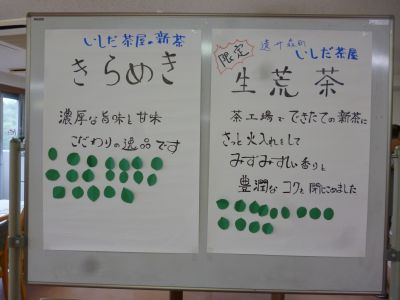 いしだ茶屋の新茶
きらめき
濃厚な旨味と甘味
こだわりの逸品です
限定
遠州森町
いしだ茶屋
生荒茶
茶工場でできたての新茶に
さっと火入れをして
みずみずしい香りと
豊潤なコクを閉じこめました